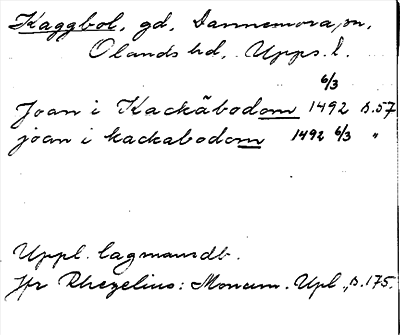 Kaggbol, gd, Dannemora, sn,
Olands hd, Upps. l.
6/3
Joan i Kackäbodom 1492 s.57
joan i kackabodom 1492 6/3 "
Uppl. lagmansdb.
Jfr Rhezelius: Monum. Upl., s.175.